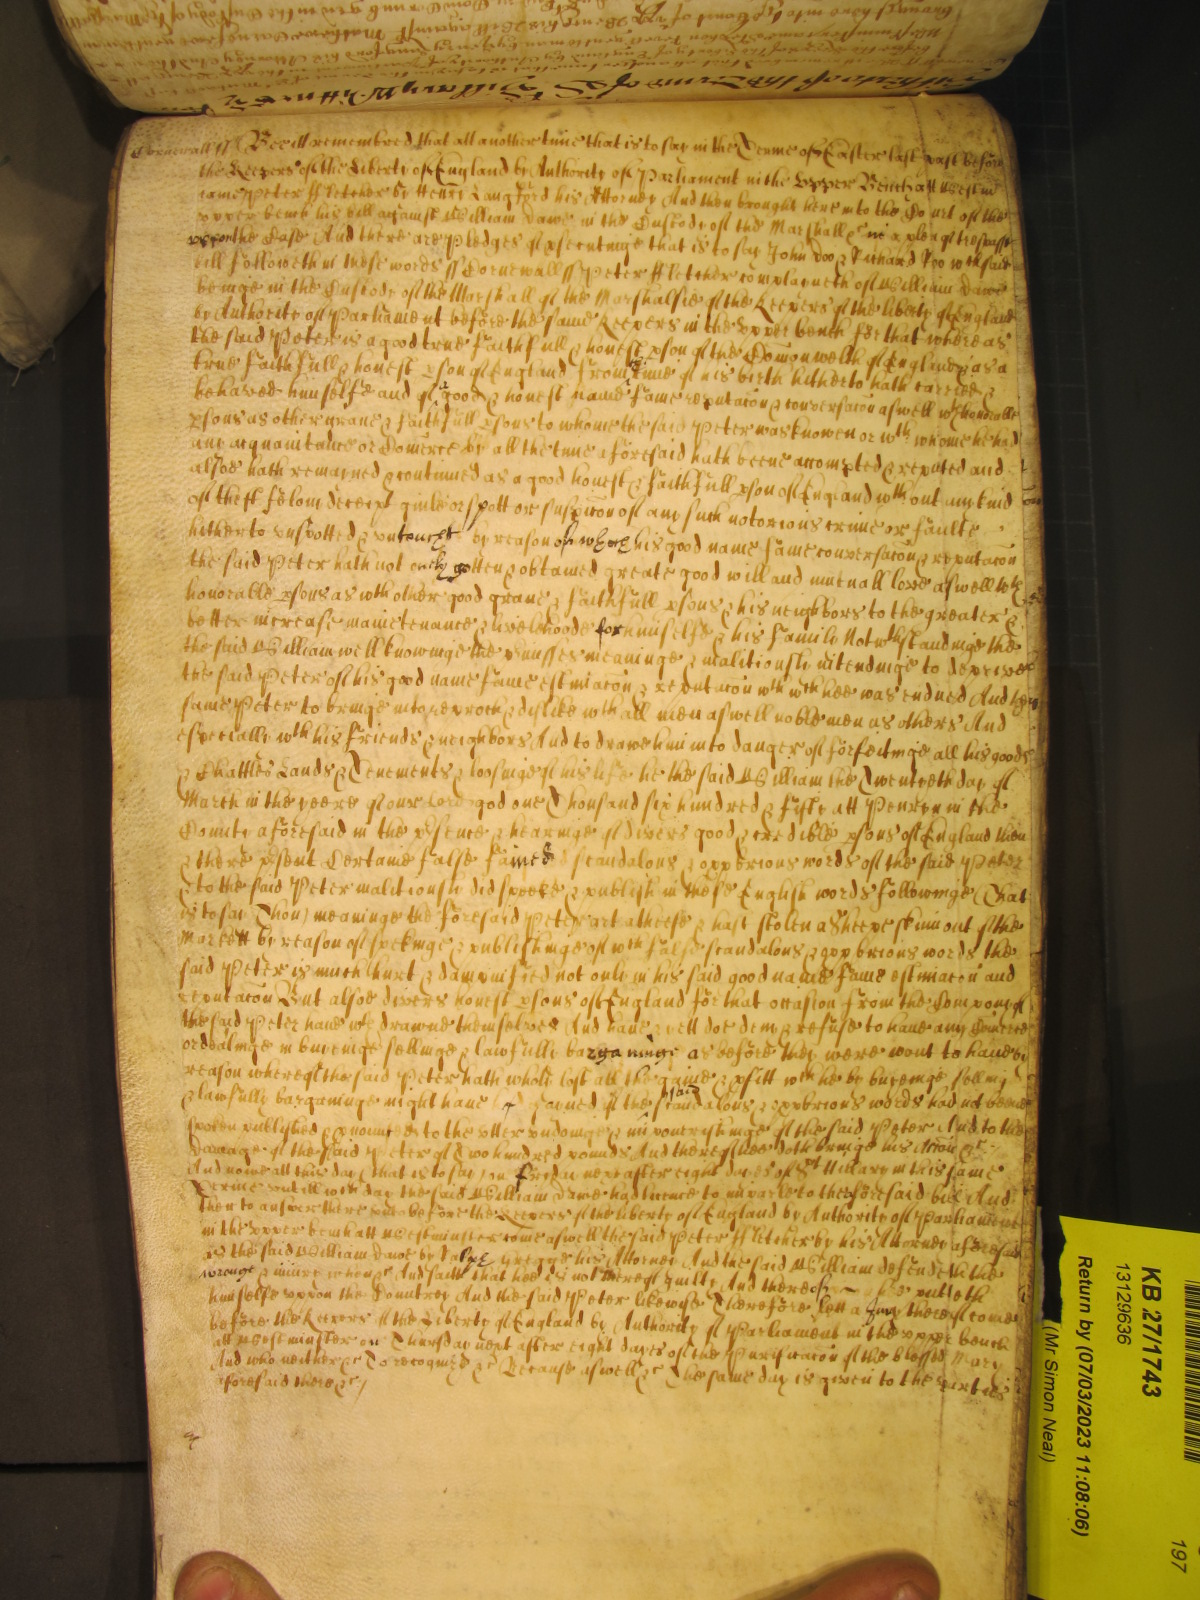 Cornewall ss Bee itt remembred that att another time that is to say in the Terme of Easter last past before
the Keepers of the Liberty of England by Authority of Parliament in the Upper Bench att Westmr
came Peter Fletcher by Henry Langford his Attorney And then brought here into the Court of the
upper bench his bill against William Dawe in the Custody of the Marshall &c in a plea of trespasse
uppon the Case And there are Pledges of prosecutinge that is to say John Doo & Richard Roo wch said
bill followeth in these words ss Cornewall ss Peter Fletcher complayneth of William Dawe
beinge in the Custody of the Marshall of the Marshalsie of the Keepers of the liberty of England
by Authority of Parliament before the same Keepers in the upper bench For that whereas
the said Peter is a good true faithfull & honest pson of the Comonwelth of England & as a
true faithfull & honest pson of England from the time of his birth hitherto hath carried &
behaved himselfe and of a good & honest name fame reputacon & conversacon aswell wth honorable
psons as other grave & faithfull psons to whome the said Peter was knowen or wth whome he had
any acquaintance or Comerce by all the time aforesaid hath beene accompted & reputed and
alsoe hath remained & continued as a good honest & faithfull pson of England wthout any kind
of theft felony deceipt guile or spott or suspicon of any such notorious crime or faulte
hitherto unspotted & untouched by reason of which his good name fame conversacon & reputacon
the said Peter hath not onely gotten & obtained greate good will and mutuall love aswell wth
honorable psons as wth other good grave & faithfull psons & his neighbors to the greater &
better increase maintenance & livelihoode for himselfe & his family Notwthstandinge the
the said William well knowinge the pmisses meaninge & malitiously intendinge to deprive
the said Peter of his good name fame estimacon & reputacon wth wch hee was endued And the
same Peter to bringe into reproch & dislike wth all men aswell noble men as others And
especially wth his friends & neighbors And to drawe him into danger of forfeitinge all his goods
& Chattles Lands & Tenements & loosinge of his life he the said William the Twenteeth day of
March in the yeere of our Lord god one Thousand six hundred & fifty att Penryn in the
County aforesaid in the psence & hearinge of divers good & credible psons of England then
& there psent Certaine false fained scandalous & opprbrious words of the said Peter
& to the said Peter malitiously did speeke & publish in these English words followinge (That
is to say) Thou (meaninge the foresaid Peter) art a theefe & hast stolen a sheepe skinn out of the
Markett by reason of speekinge & publishinge of wch false scandalous & opprbrious words the
said Peter is much hurt & dampnified not only in his said good name fame estimacon and
reputacon But alsoe divers honest psons of England for that occasion from the Company of
the said Peter have wthdrawne themselves And have & yett doe deny & refuse to have any Comerce
or dealinge in buyeinge sellinge & lawfully bargaininge as before they were wont to have by
reason whereof the said Peter hath wholy lost all the gaine & pfitt wch he by buyeinge selling
& lawfully bargaininge might have gained if the said scandalous & opprbrious words had not beene
spoken published & pnounced to the utter undoinge & impoverishinge of the said Peter And to the
damage of the said Peter of Two hundred pounds And thereof hee doth bringe his Accon &c
And nowe att this day (that is to say) on Friday next after eight dayes of St Hillary in this same
Terme untill wch day the said William Dawe had licence to imparle to the foresaid bill And
then to answer there before the Keepers of the liberty of England by Authority of Parliament
in the upper bench att Westminster come aswell the said Peter Fletcher by his Attorney aforesaid
as the said William Dawe by Gregor his Attorney And the said William defendeth the
wronge & iniury whence And saith that hee is not thereof guilty And thereof he putteth
himselfe uppon the Countrey And the said Peter likewise Therefore lett a Jury thereof come
before the Keepers of the Liberty of England by Authority of Parliament in the upper bench
att Westminster on Thursday next after eight dayes of the Purificacon of the blessed Mary
And who neither &c To recognize &c Because aswell &c The same day is given to the parties
aforesaid there &c
KB 27/1743
13129636
Return by (07/03/2023 11:08:06)
(Mr Simon Neal)
197